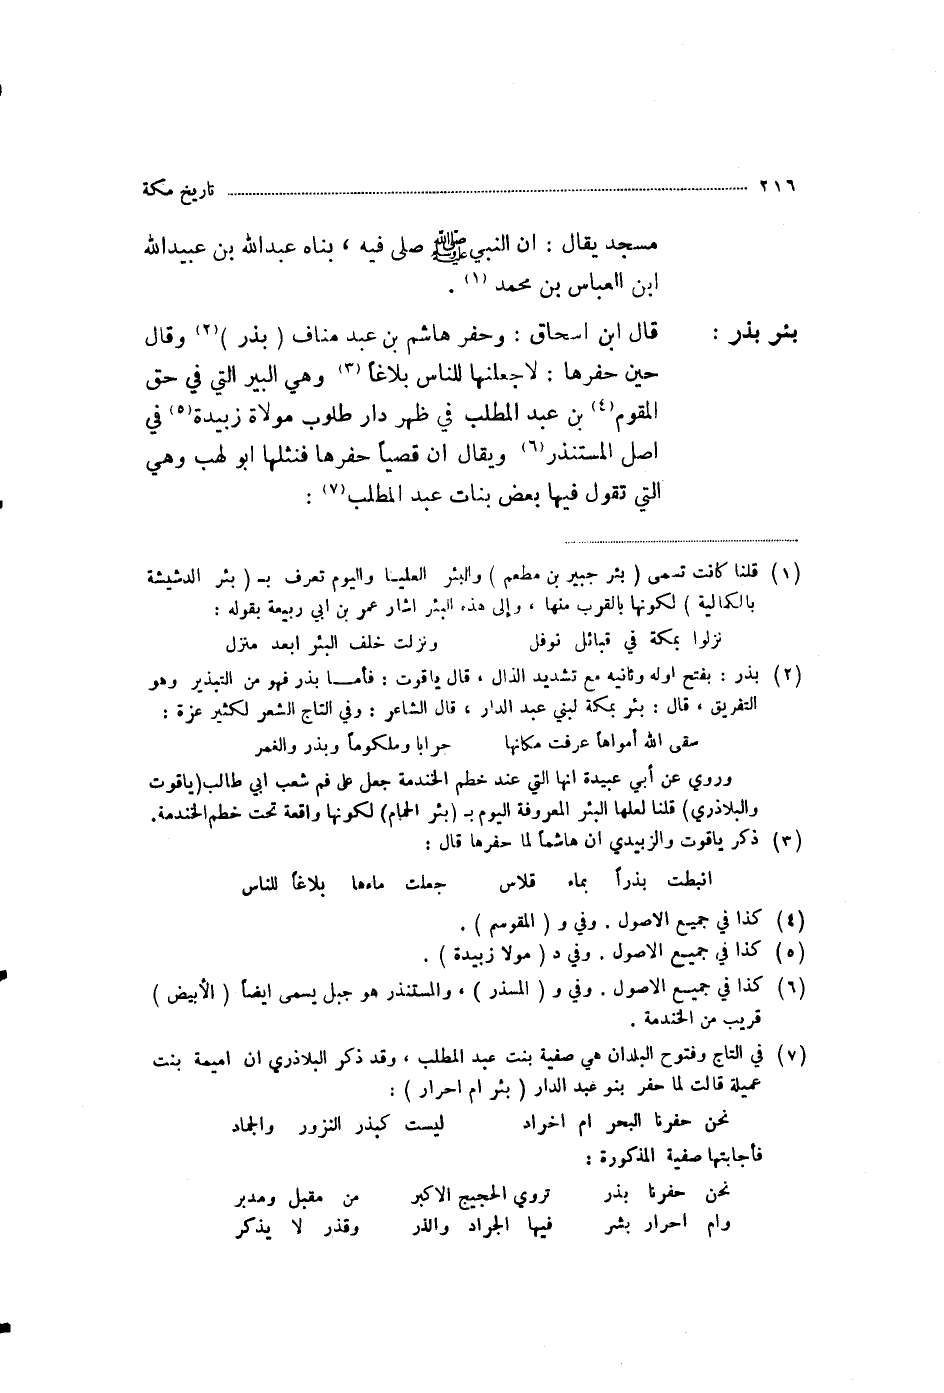 ٢١٦ ........ تاريخ مكة
مسجد يقال : ان النبي ﷺ صلى فيه ، بناه عبدالله بن عبيدالله
ابن العباس بن محمد (١) .
بئر بذر : قال ابن اسحاق : وحفر هاشم بن عبد مناف ( بذر )(٢) وقال
حين حفرها : لاجعلنها للناس بلاغاً (٣) وهي البير التي في حق
المقوم(٤) بن عبد المطلب في ظهر دار طلوب مولاة زبيدة(٥) في
اصل المستنذر(٦) ويقال ان قصياً حفرها فنثلها ابو لهب وهي
التي تقول فيها بعض بنات عبد المطلب(٧) :
(١) قلنا كانت تسمى ( بئر جبير بن مطعم ) والبئر العليا واليوم تعرف بـ ( بئر الدشيشة
بالكمالية ) لكونها بالقرب منها ، وإلى هذه البئر اشار عمر بن ابي ربيعة بقوله :
نزلوا بمكة في قبائل نوفل ونزلت خلف البئر ابعد منزل
(٢) بذر : بفتح اوله وثانيه مع تشديد الذال ، قال ياقوت : فأما بذر فهو من التبذير وهو
التفريق ، قال : بئر بمكة لبني عبد الدار ، قال الشاعر : وفي التاج الشعر لكثير عزة :
سقى الله أمواهاً عرفت مكانها جرابا وملكوماً وبذر والغمر
وروي عن أبي عبيدة انها التي عند خطم الخندمة جعل على فم شعب ابي طالب(ياقوت
والبلاذري) قلنا لعلها البئر المعروفة اليوم بـ (بئر الحمام) لكونها واقعة تحت خطم الخندمة.
(٣) ذكر ياقوت والزبيدي ان هاشماً لما حفرها قال :
انبطت بذراً بماء قلاس جعلت ماءها بلاغاً للناس
(٤) كذا في جميع الاصول . وفي و ( المقوسم ) .
(٥) كذا في جميع الاصول . وفي د ( مولا زبيدة ) .
(٦) كذا في جميع الاصول . وفي و ( المسذر ) ، والمستنذر هو جبل يسمى ايضاً ( الأبيض )
قريب من الخندمة .
(٧) في التاج وفتوح البلدان هي صفية بنت عبد المطلب ، وقد ذكر البلاذري ان اميمة بنت
عميلة قالت لما حفر بنو عبد الدار ( بئر ام احرار ) :
نحن حفرنا البحر ام اخراد ليست كبذر النزور والجماد
فأجابتها صفية المذكورة :
نحن حفرنا بذر تروي الحجيج الاكبر من مقبل ومدبر
وام احرار بشر فيها الجراد والذر وقذر لا يذكر